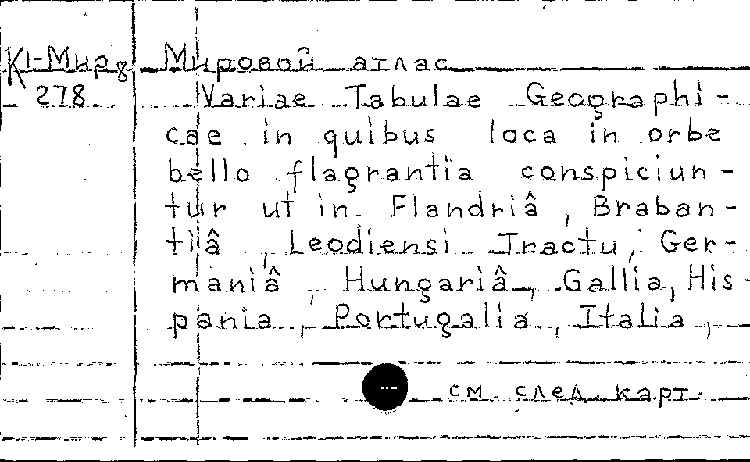 К1-Мир 8 Мировой атлас
278 Variae Tabulae Geographi-
cae in quibus loca in orbe
bello flagrantia conspiciun-
tur ut in Flandriâ, Braban-
tiâ, Leodiensi Tractu, Ger-
maniâ, Hungariâ, Gallia, His-
pania, Portugalia, Italia,
см. след. карт.